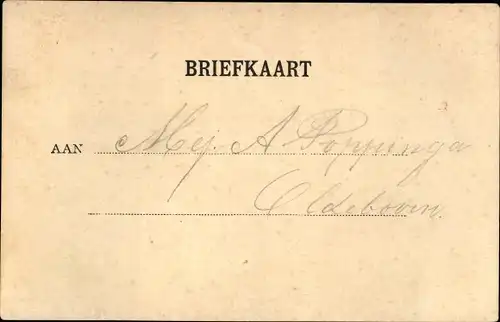 BRIEFKAART
AAN Mej. A Poppinga
Oldeboorn.